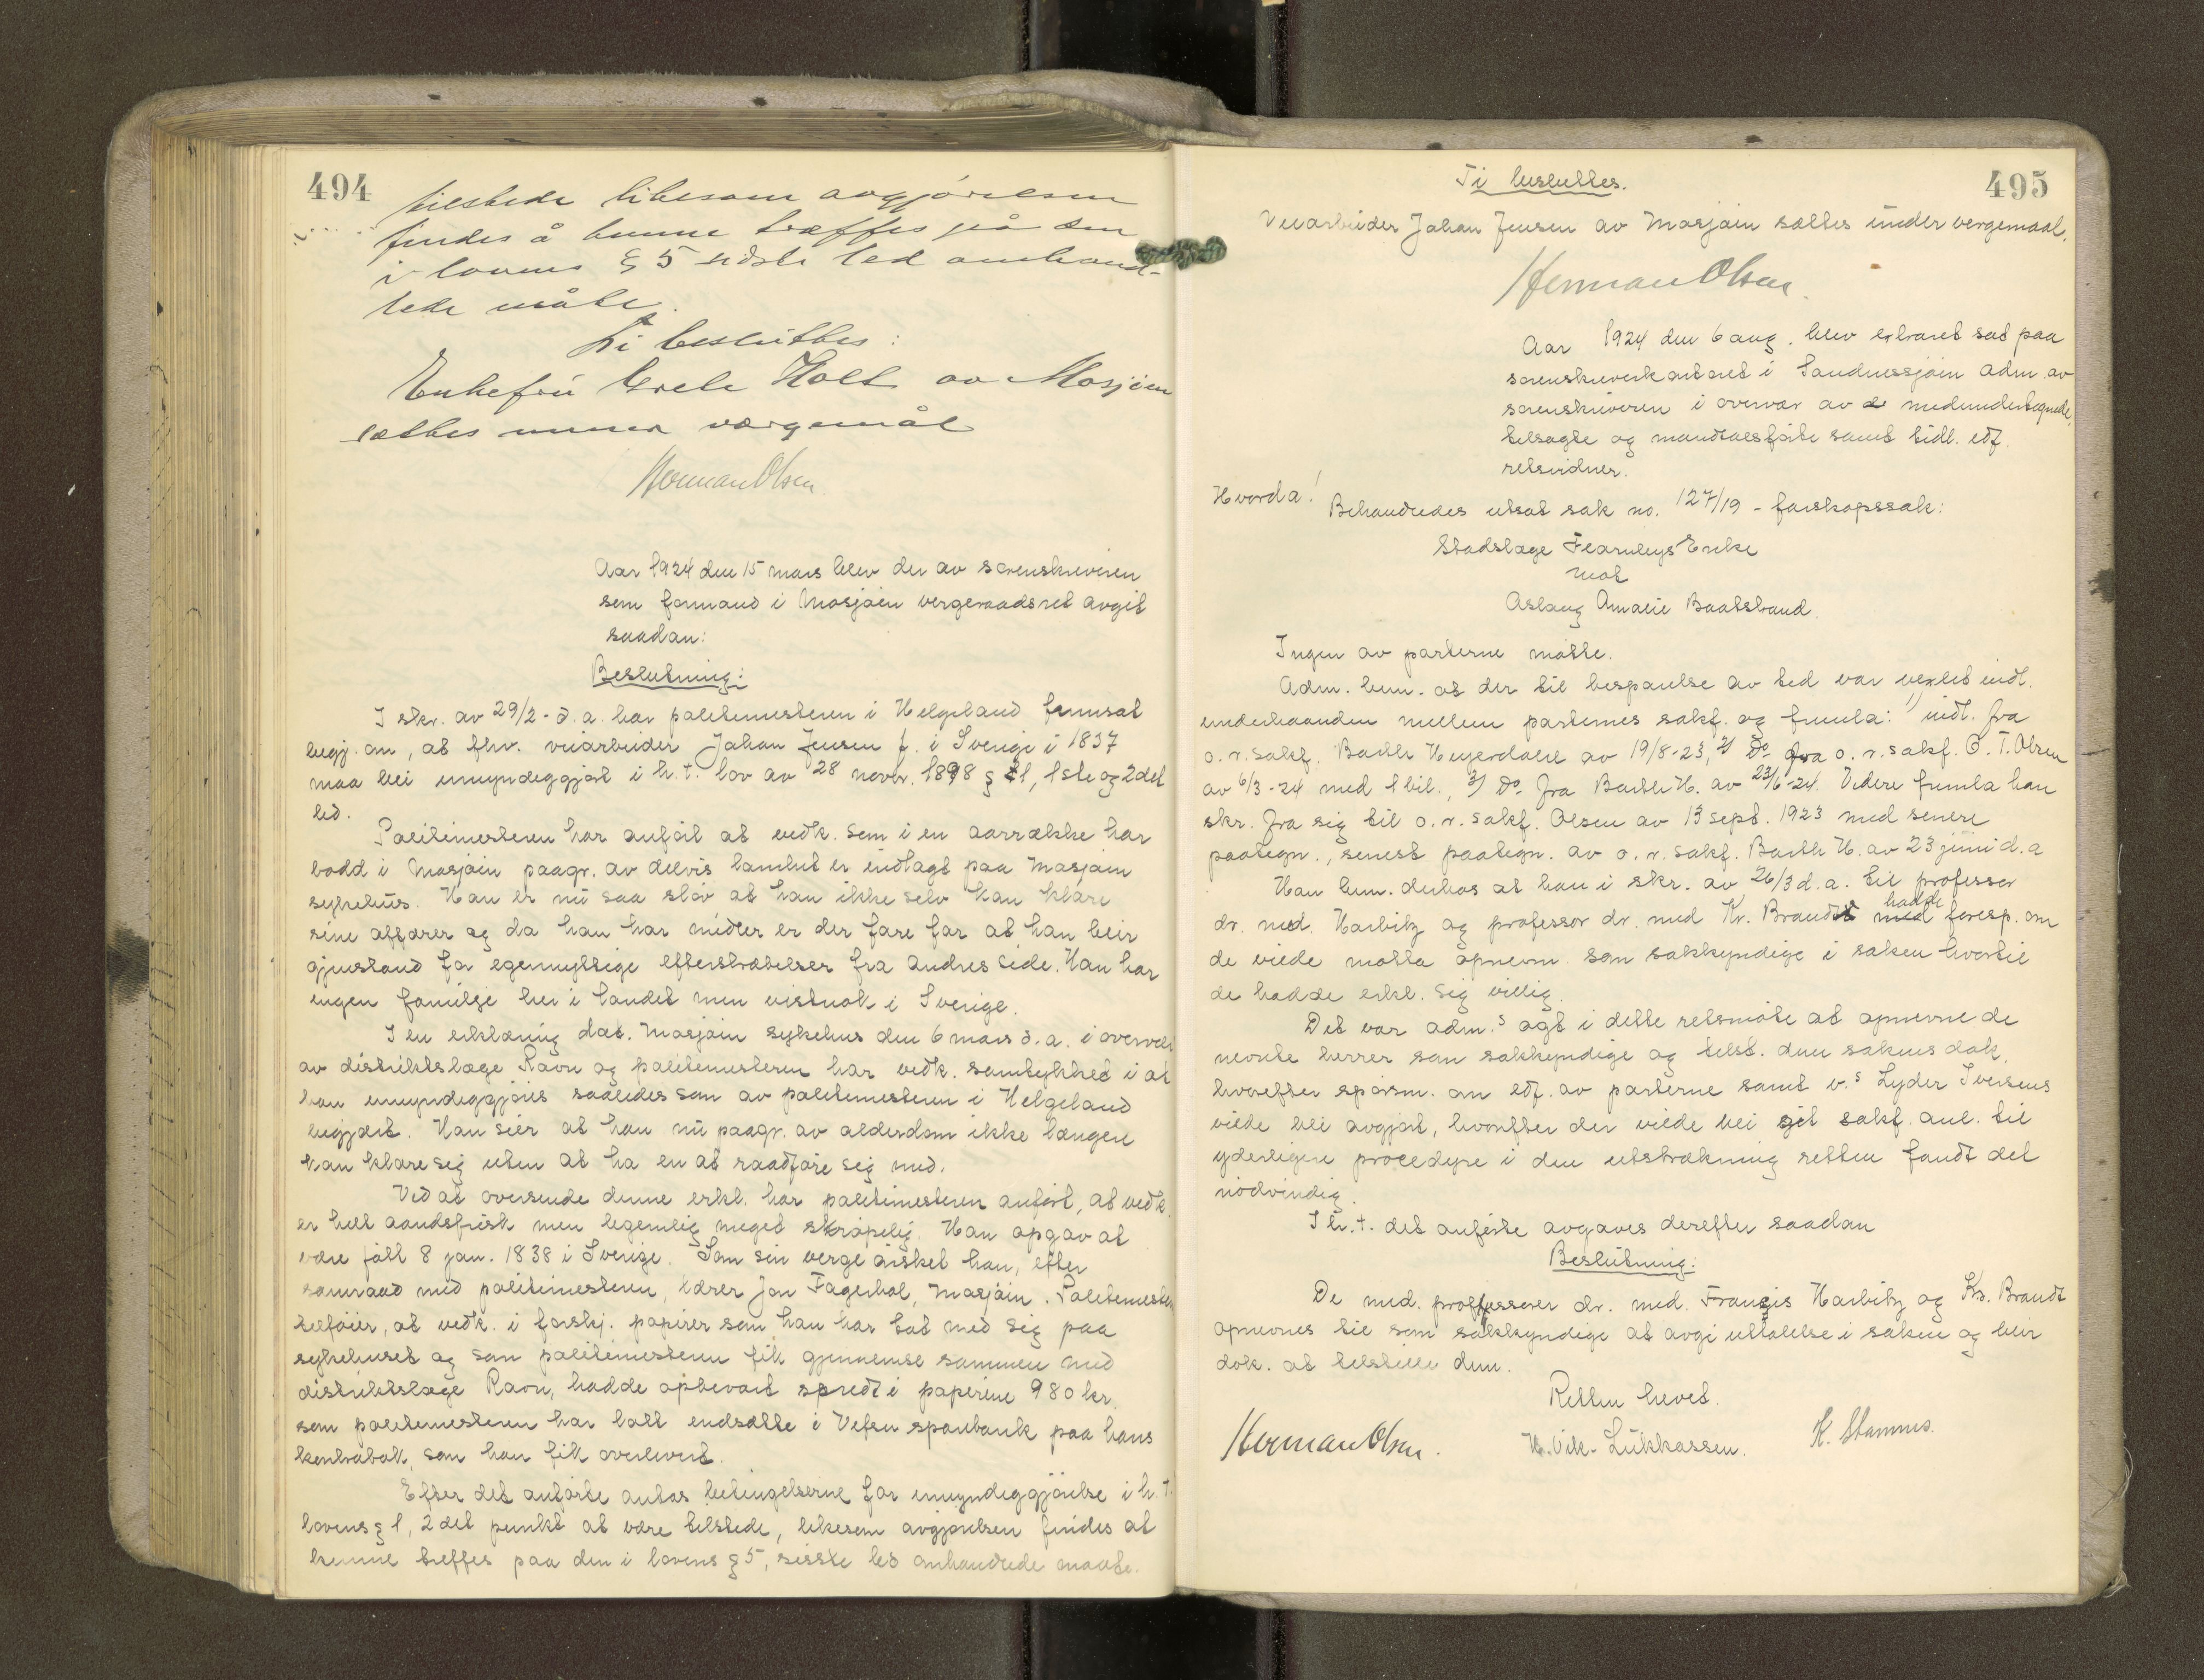 494
tilstede likesom avgjörelsen
findes å kunne træffes på den
i lovens § 5 sidste led omhand-
lede måte.
Ti besluttes:
Enkefru Grele Holt av Mosjöen
sættes under værgemål
Herman Olsen
Aar 1924 den 15 mars blev der av sorenskriveren
som formand i Mosjöen vergeraadsret avgit
saadan:
Beslutning:
I skr. av 29/2 - d.a. har politimesteren i Helgeland fremsat
begj. om, at fhv. veiarbeider Johan Jensen f. i Sverige i 1837
maa bli umyndiggjort i h.t. lov av 28 novbr. 1898 § 1, 1ste og 2det
led.
Politimesteren har anfört at vedk. som i en aarrække har
bodd i Mosjöen paagr. av delvis lamhet er indlagt paa Mosjöen
sykehus. Han er nu saa slöv at han ikke selv kan klare
sine affærer og da han har midler er der fare for at han blir
gjenstand for egennyttige efterstræbelser fra andres side. Han har
ingen familje her i landet men vistnok i Sverige.
I en erklæring dat. Mosjöen sykehus den 6 mars d.a. i overvær
av distriktslæge Ravn og politimesteren har vedk. samtykket i at
han umyndiggjöres saaledes som av politimesteren i Helgeland
begjært. Han sier at han nu paagr. av alderdom ikke længere
kan klare sig uten at ha en at raadföre sig med.
Ved at oversende denne erkl. har politimesteren anfört, at vedk.
er helt aandsfrisk men legemlig meget skröpelig. Han opgav at
være födt 8 jan. 1838 i Sverige. Som sin verge önsket han, efter
samraad med politimesteren, lærer Jon Fagerhol, Mosjöen. Politimesteren
tilföier, at vedk. i forskj. papirer som han har tat med sig paa
sykehuset og som politimesteren fik gjennemse sammen med
distriktslæge Ravn, hadde opbevart spredt i papirene 980 kr.
som politimesteren har latt indsætte i Vefsn sparebank paa hans
kontrabok, som han fik overlevert.
Efter det anförte antas betingelserne for umyndiggjörelse i h.t.
lovens § 1, 2det punkt at være tilstede, likesom avgjörelsen findes at
kunne treffes paa den i lovens § 5, sisste led omhandlede maate.
495
Ti besluttes.
Veiarbeider Johan Jensen av Mosjöen sættes under vergemaal.
Herman Olsen
Aar 1924 den 6 aug. blev extraret sat paa
sorenskriverkontoret i Sandnessjöen adm. av
sorenskriveren i overvær av de medundertegnede,
tilsagte og mandtalsförte samt tidl. edf.
retsvidner.
Hvorda!
Behandledes utsat sak no. 127/19 - farskapssak:
Stadslæge Fearnleys Enke
mot
Aslaug Amalie Baatstrand.
Ingen av parterne mötte.
Adm. bem. at der til besparelse av tid var vexlet indl.
underhaanden mellem parternes sakf. og fremla: 1) indl. fra
o.r.sakf. Barth Heyerdahl av 19/8-23, 2) do. fra o.r.sakf. O.T. Olsen
av 6/3-24 med 1 bil., 3) do. fra Barth H. av 23/6-24. Videre fremla han
skr. fra sig til o.r.sakf. Olsen av 13 sept. 1923 med senere
paategn., senest paategn. av o.r.sakf. Barth H. av 23 juni d.a
Han bem. derhos at han i skr. av 26/3 d.a. til professor
dr. med. Harbitz og professor dr. med Kr. Brandt hadde foresp. om
de vilde motta opnevn. som sakkyndige i saken hvortil
de hadde erkl. sig villig.
Det var adm.s agt i dette retsmöte at opnevne de
nevnte herrer som sakkyndige og tilst. dem sakens dok.
hvorefter spörsm. om edf. av parterne samt v.s Lyder Iversens
vilde bli avgjort, hvorefter der vilde bli git sakf. anl. til
yderligere procedyre i den utstrækning retten fandt det
nödvendig.
I h.t. det anförte avgaves derefter saadan
Beslutning:
De med. professorer dr. med. Francis Harbitz og Kr. Brandt
opnevnes til som sakkyndige at avgi uttalelse i saken og blir
dok. at tilstille dem.
Retten hevet.
Herman Olsen. H. Vik-Lukkassen. K. Stamnes.